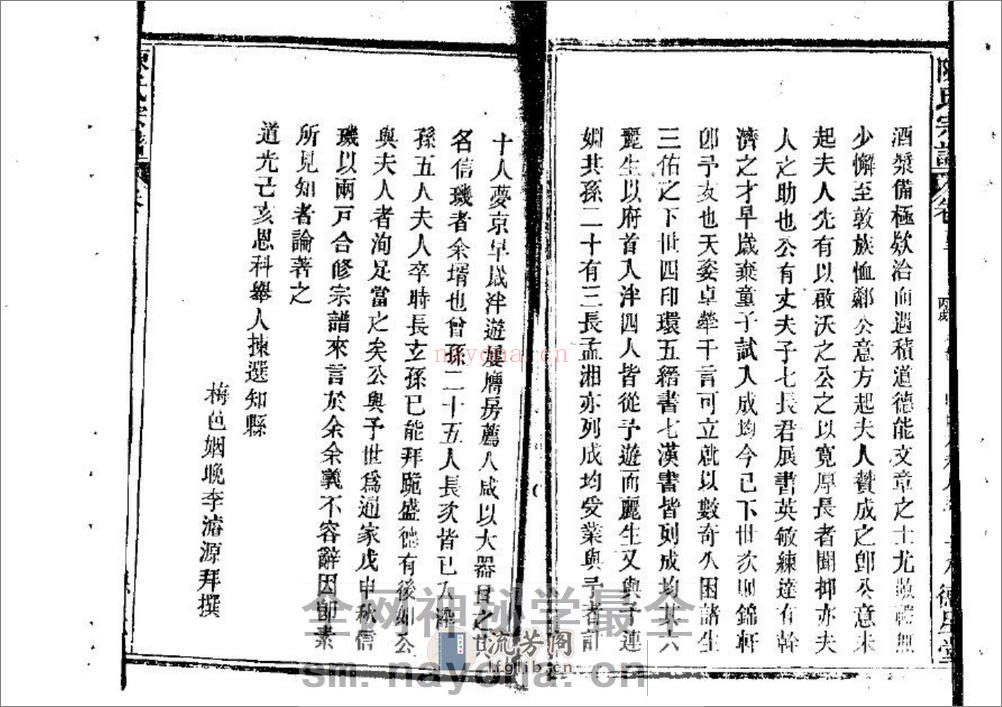 陳氏宗譜
酒漿備極欵洽而遇積道德能文章之士尤敬禮無
少懈至敦族恤鄰公意方起夫人贊成之卽公意未
起夫人先有以啟沃之公之以寬厚長者聞抑亦夫
人之助也公有丈夫子七長君展書英敏練達有幹
濟之才早歲棄童子試入成均今已下世次則錦軒
卽予友也天姿卓犖千言可立就以數奇久困諸生
三佑之下世四印環五縉書七漢書皆列成均其六
麗生以府首入泮四人皆從予遊而麗生又與予連
姻共孫二十有三長孟湘亦列成均受業與予者計
十人夢京早歲泮遊屢膺房薦人咸以大器目之其
名信璣者余壻也曾孫二十五人長次皆已入泮
孫五人夫人卒時長玄孫已能拜跪盛德有後如公
與夫人者洵足當之矣公與予世爲通家戊申秋信
璣以兩戸合修宗譜來言於余余義不容辭因卽素
所見知者論著之
道光己亥恩科舉人揀選知縣
梅邑姻晚李濬源拜撰
nayona.cn
全网神秘学最全
流芳阁
lfglib.com
sm.nayona.cn